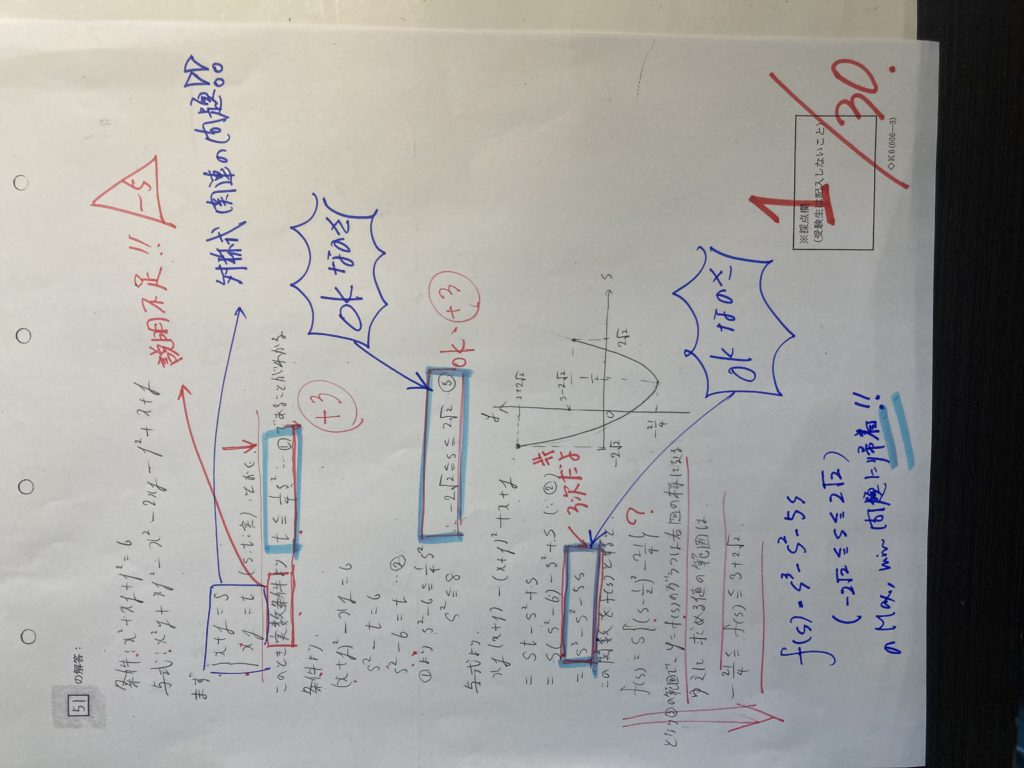 51 の解答：
条件：x²+xy+y²=6
与式：x²y+xy²-x²-2xy-y²+x+y
まず
{ x+y=S
xy=t (s,t:実)とおく.
このとき実数条件より t≦1/4 s² …① であることがわかる
説明不足!!
-5
対称式関連の問題
+3
条件より
(x+y)²-xy=6
s²-t=6
s²-6=t …②
①より s²-6≦1/4 s²
s²≦8
∴ -2√2≦s≦2√2 …③
OK. +3
OKなのさ
与式より
xy(x+y)-(x+y)²+x+y
=st-s²+s
=s(s²-6)-s²+s (∵②)
=s³-s²-5s
3次だよ
この関数をf(s)とすると
f(s)=s{(s-1/2)²-21/4} ?
より③の範囲で y=f(s)のグラフは右図の様になる
ゆえに 求める値の範囲は
-21/4≦f(s)≦3+2√2
y
3+2√2
3-2√2
1/2
-2√2
0
2√2
s
-21/4
OKなのさ
f(s)=s³-s²-5s
(-2√2≦s≦2√2)
の Max, min 問題に帰着!!
※採点欄
(受験生は記入しないこと)
1/30.
◇K6(606—3)